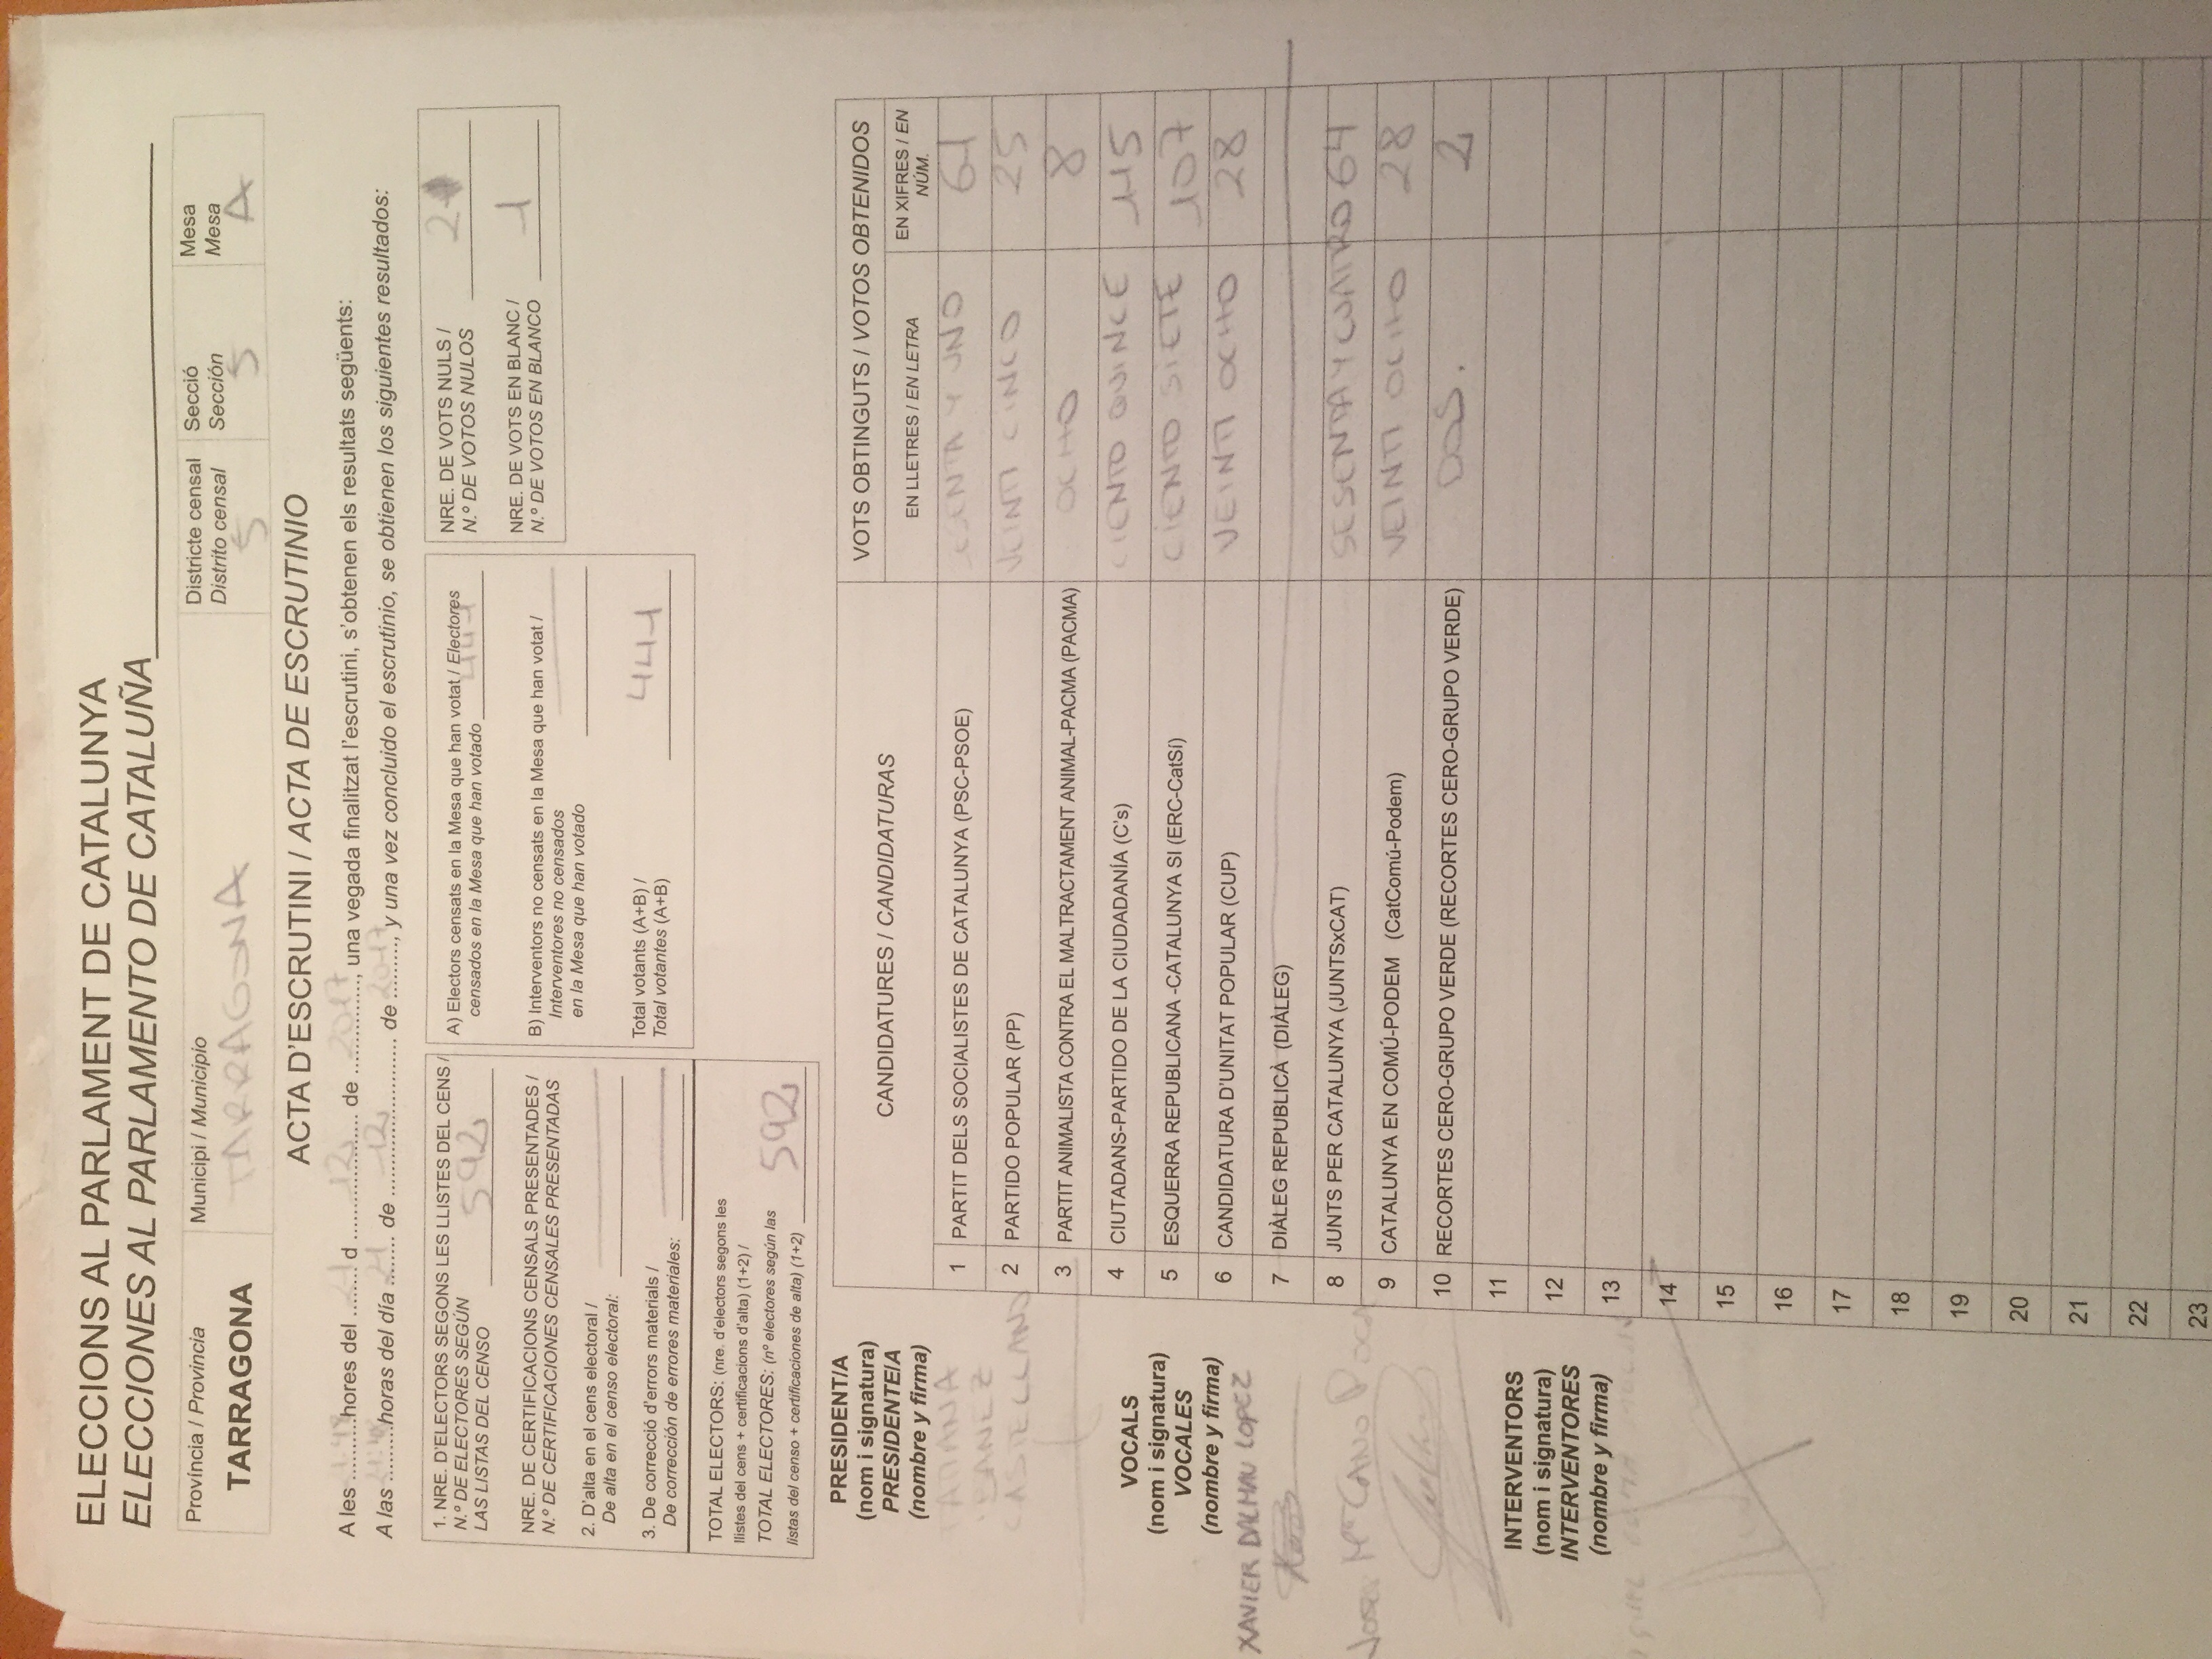 ELECCIONS AL PARLAMENT DE CATALUNYA
ELECCIONES AL PARLAMENTO DE CATALUÑA
Província / Provincia
TARRAGONA
Municipi / Municipio
TARRAGONA
Districte censal
Distrito censal
5
Secció
Sección
5
Mesa
Mesa
A
ACTA D'ESCRUTINI / ACTA DE ESCRUTINIO
A les .......... hores del 21 d 12 de 2017, una vegada finalitzat l'escrutini, s'obtenen els resultats següents:
A las .......... horas del día 21 de 12 de 2017, y una vez concluido el escrutinio, se obtienen los siguientes resultados:
1. NRE. D'ELECTORS SEGONS LES LLISTES DEL CENS /
N.º DE ELECTORES SEGÚN
LAS LISTAS DEL CENSO 592
NRE. DE CERTIFICACIONS CENSALS PRESENTADES /
N.º DE CERTIFICACIONES CENSALES PRESENTADAS
2. D'alta en el cens electoral /
De alta en el censo electoral:
3. De correcció d'errors materials /
De corrección de errores materiales:
TOTAL ELECTORS: (nre. d'electors segons les
llistes del cens + certificacions d'alta) (1+2) /
TOTAL ELECTORES: (nº electores según las
listas del censo + certificaciones de alta) (1+2) 592
A) Electors censats en la Mesa que han votat / Electores
censados en la Mesa que han votado 441
B) Interventors no censats en la Mesa que han votat /
Interventores no censados
en la Mesa que han votado
Total votants (A+B) /
Total votantes (A+B) 441
NRE. DE VOTS NULS /
N.º DE VOTOS NULOS 2
NRE. DE VOTS EN BLANC /
N.º DE VOTOS EN BLANCO 1
PRESIDENT/A
(nom i signatura)
PRESIDENTE/A
(nombre y firma)
TATIANA
IBANEZ
CASTELLANO
VOCALS
(nom i signatura)
VOCALES
(nombre y firma)
XAVIER DALMAU LOPEZ
Josep Mª CANO
INTERVENTORS
(nom i signatura)
INTERVENTORES
(nombre y firma)
CANDIDATURES / CANDIDATURAS
VOTS OBTINGUTS / VOTOS OBTENIDOS
EN LLETRES / EN LETRA
EN XIFRES / EN
NÚM.
1 PARTIT DELS SOCIALISTES DE CATALUNYA (PSC-PSOE) SESENTA Y UNO 61
2 PARTIDO POPULAR (PP) VEINTI CINCO 25
3 PARTIT ANIMALISTA CONTRA EL MALTRACTAMENT ANIMAL-PACMA (PACMA) OCHO 8
4 CIUTADANS-PARTIDO DE LA CIUDADANÍA (C's) CIENTO QUINCE 115
5 ESQUERRA REPUBLICANA -CATALUNYA SI (ERC-CatSí) CIENTO SIETE 107
6 CANDIDATURA D'UNITAT POPULAR (CUP) VEINTI OCHO 28
7 DIÀLEG REPUBLICÀ (DIÀLEG)
8 JUNTS PER CATALUNYA (JUNTSxCAT) SESENTA Y CUATRO 64
9 CATALUNYA EN COMÚ-PODEM (CatComú-Podem) VEINTI OCHO 28
10 RECORTES CERO-GRUPO VERDE (RECORTES CERO-GRUPO VERDE) DOS. 2
11
12
13
14
15
16
17
18
19
20
21
22
23